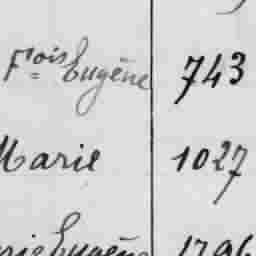 Fois Eugène 743
Marie 1027
Eugène